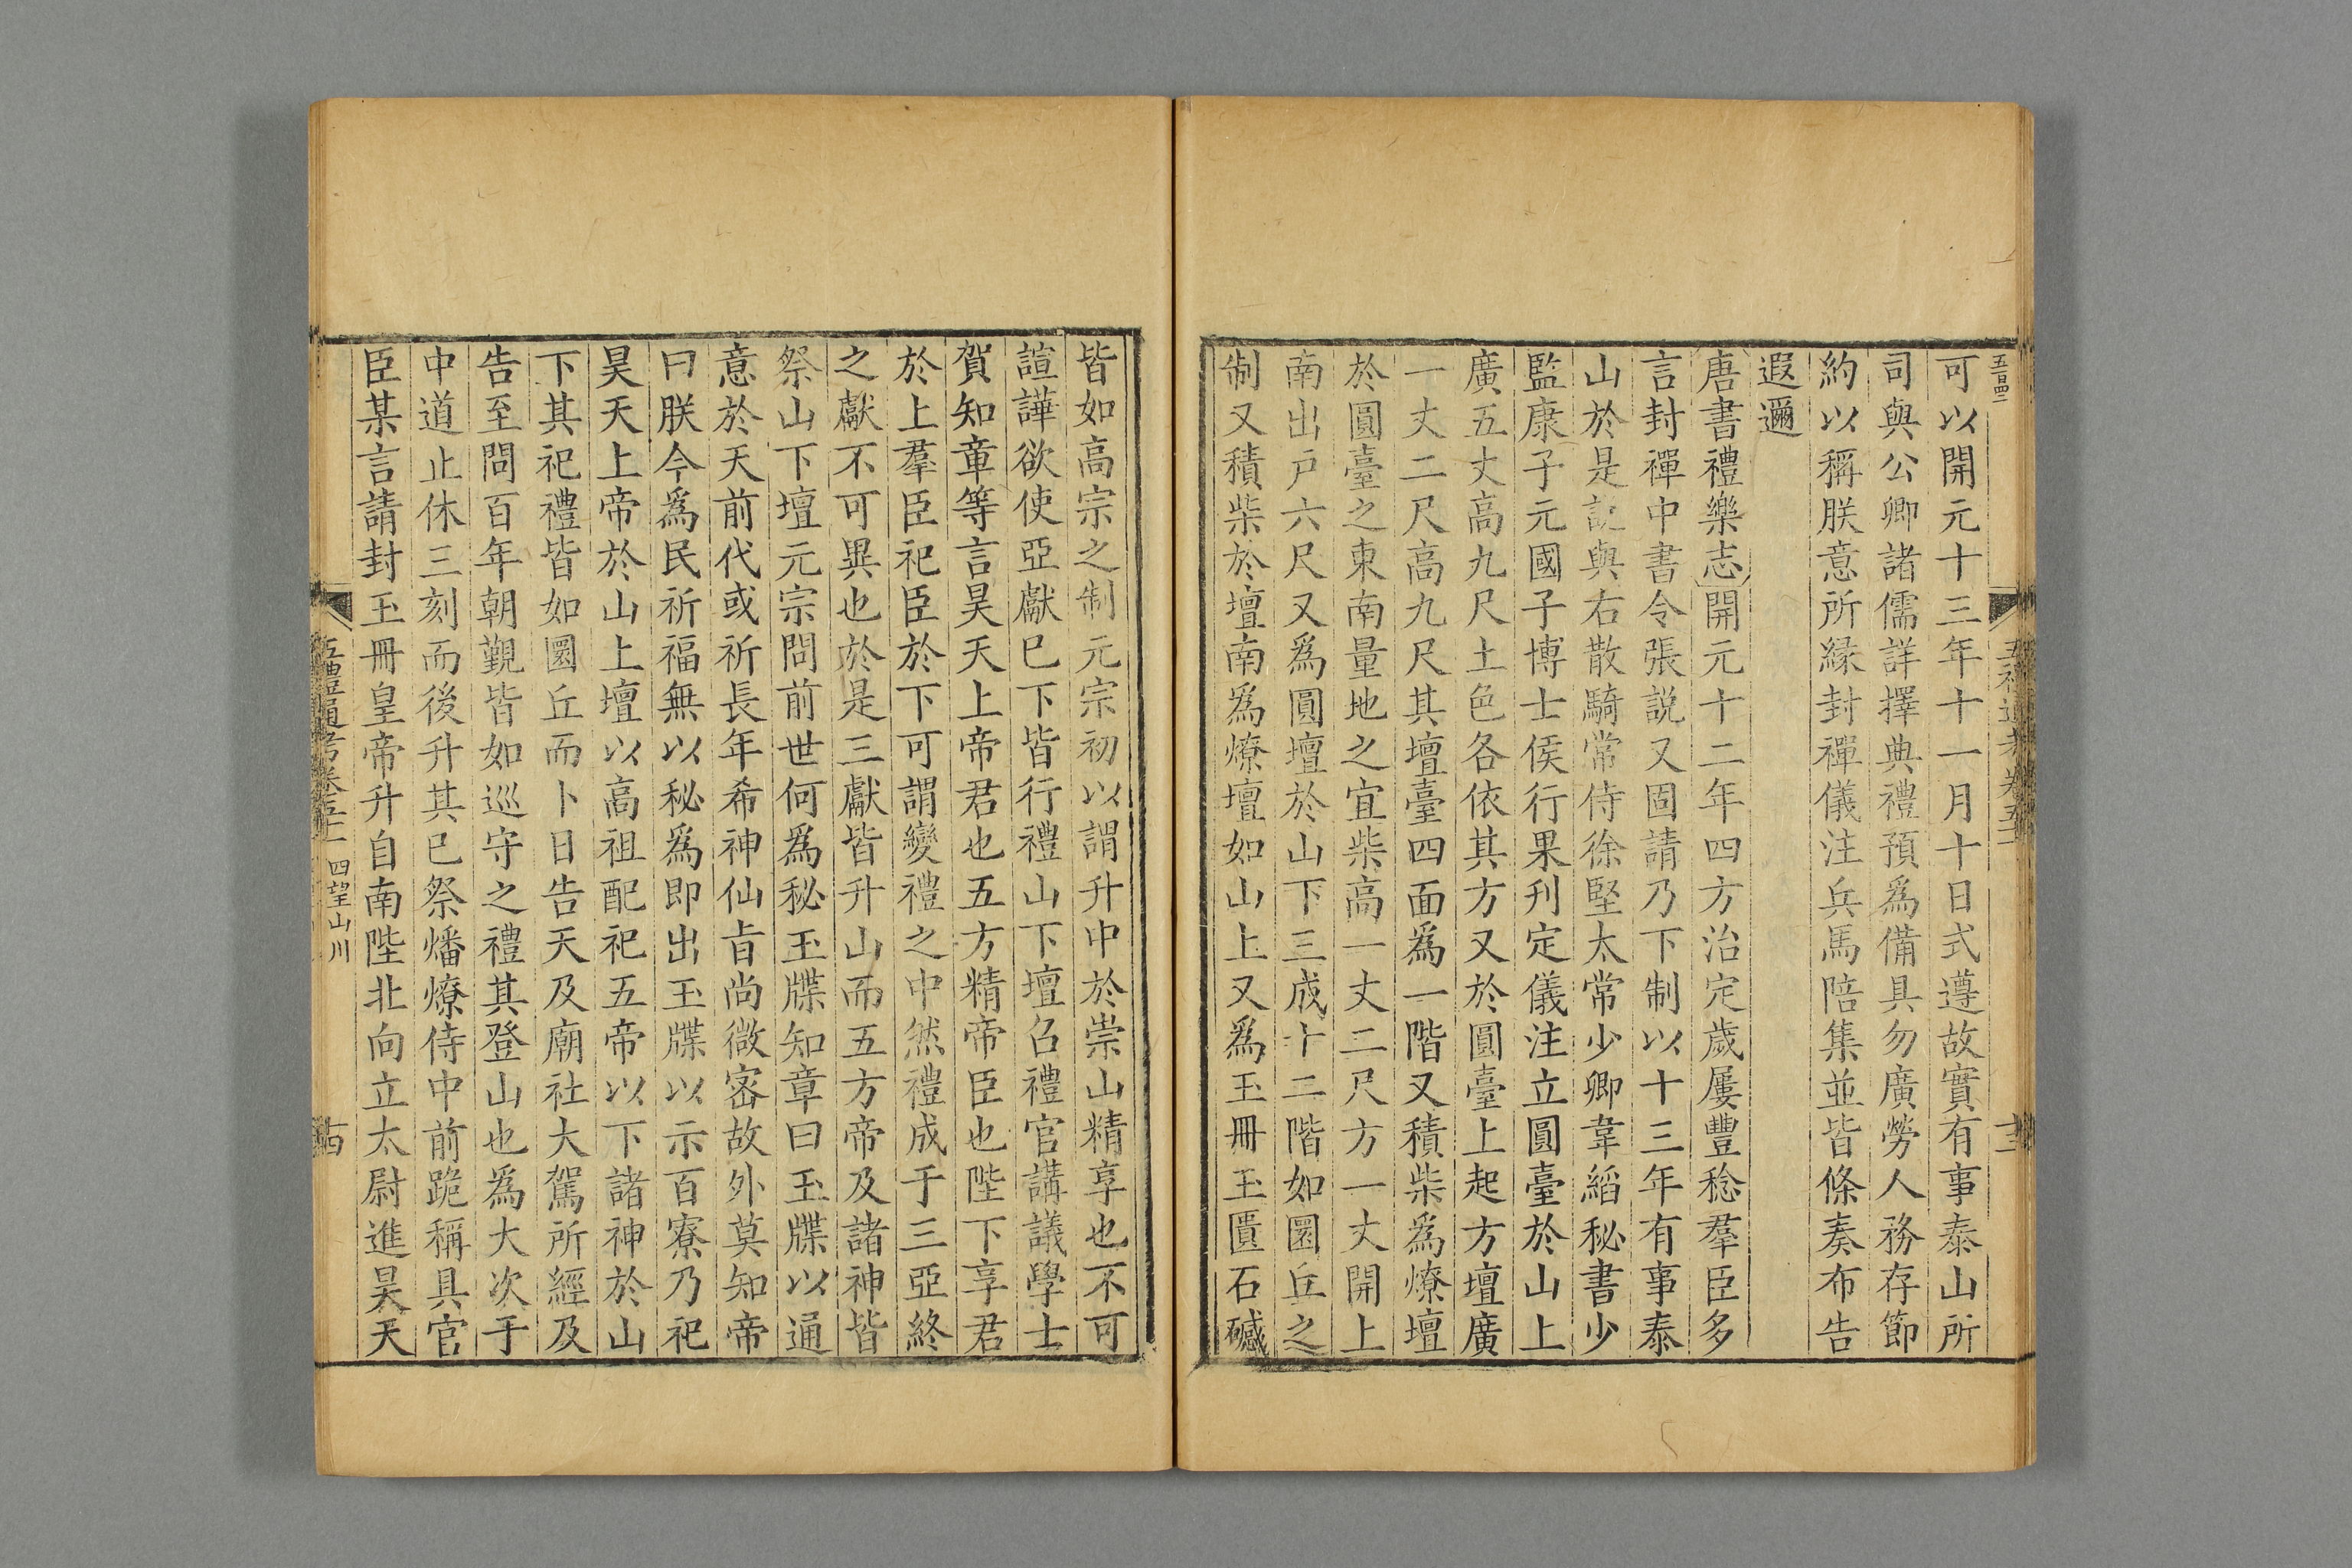 可以開元十三年十一月十日式遵故實有事泰山所
司與公卿諸儒詳擇典禮預爲備具勿廣勞人務存節
約以稱朕意所緣封禪儀注兵馬陪集並皆條奏布告
遐邇
唐書禮樂志開元十二年四方治定歲屢豐稔羣臣多
言封禪中書令張説又固請乃下制以十三年有事泰
山於是説與右散騎常侍徐堅太常少卿韋縚秘書少
監康子元國子博士侯行果刋定儀注立圓臺於山上
廣五丈高九尺土色各依其方又於圓臺上起方壇廣
一丈二尺高九尺其壇臺四面爲一階又積柴爲燎壇
於圓臺之東南量地之宜柴高一丈二尺方一丈開上
南出戸六尺又爲圓壇於山下三成十二階如圜丘之
制又積柴於壇南爲燎壇如山上又爲玉冊玉匱石䃭
皆如高宗之制元宗初以謂升中於崇山精享也不可
諠譁欲使亞獻已下皆行禮山下壇召禮官講議學士
賀知章等言昊天上帝君也五方精帝臣也陛下享君
於上羣臣祀臣於下可謂變禮之中然禮成于三亞終
之獻不可異也於是三獻皆升山而五方帝及諸神皆
祭山下壇元宗問前世何爲秘玉牒知章曰玉牒以通
意於天前代或祈長年希神仙㫖尚微密故外莫知帝
曰朕今爲民祈福無以秘爲即出玉牒以示百寮乃祀
昊天上帝於山上壇以高祖配祀五帝以下諸神於山
下其祀禮皆如圜丘而卜日告天及廟社大駕所經及
告至問百年朝覲皆如巡守之禮其登山也爲大次于
中道止休三刻而後升其已祭燔燎侍中前跪稱具官
臣某言請封玉冊皇帝升自南陛北向立太尉進昊天
四望山川